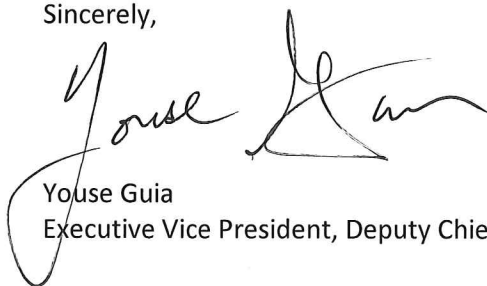 Sincerely,
Youse
Youse Guia
Executive Vice President, Deputy Chie